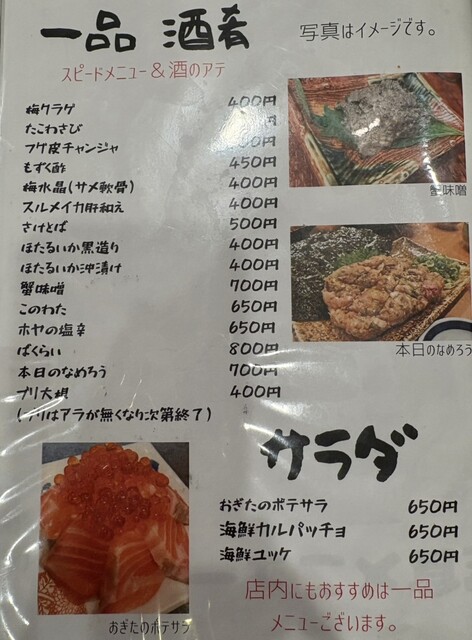 一品 酒肴
写真はイメージです。
スピードメニュー＆酒のアテ
梅クラゲ 400円
たこわさび 円
フグ皮チャンジャ 00円
もずく酢 450円
梅水晶(サメ軟骨) 400円
スルメイカ肝和え 400円
さけとば 500円
ほたるいか黒造り 400円
ほたるいか沖漬け 400円
蟹味噌 700円
このわた 650円
ホヤの塩辛 650円
ばくらい 800円
本日のなめろう 700円
ブリ大根 400円
(ブリはアラが無くなり次第終了)
蟹味噌
本日のなめろう
サラダ
おぎたのポテサラ 650円
海鮮カルパッチョ 650円
海鮮ユッケ 650円
店内にもおすすめは一品
メニューございます。
おぎたのポテサラ